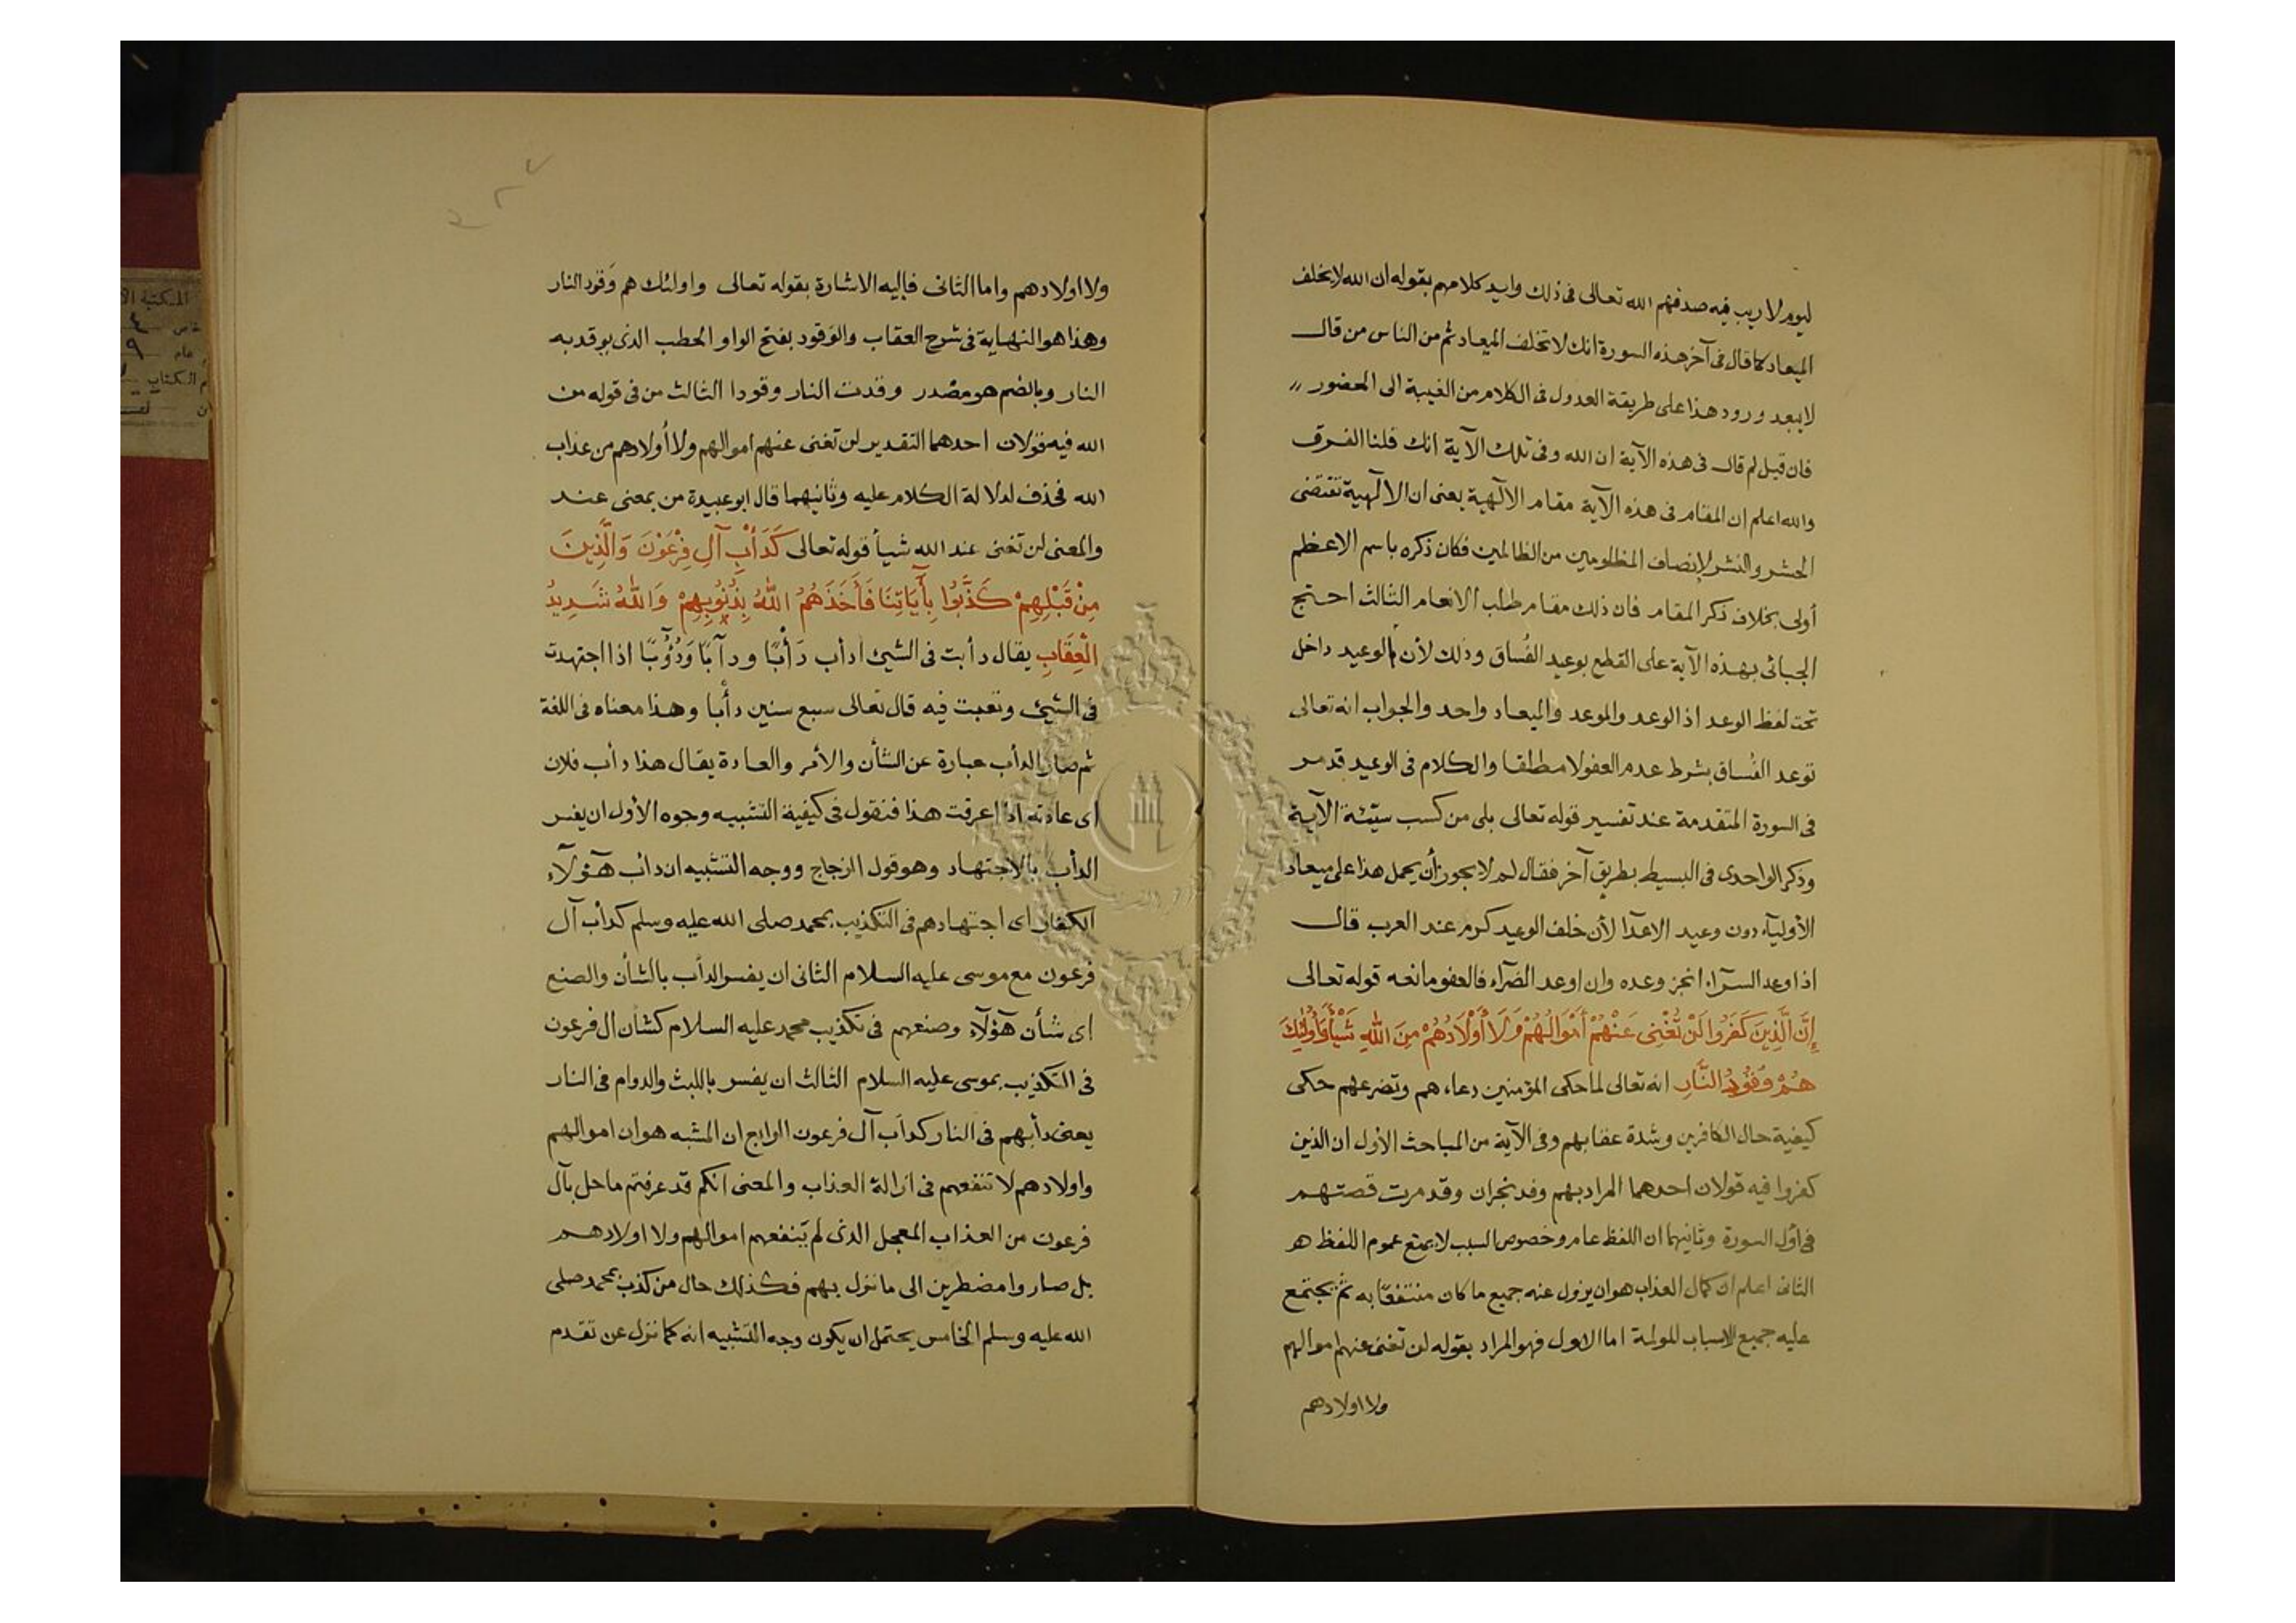 ليوم لا ريب فيه صدقهم الله تعالى فى ذلك وايد كلامهم بقوله ان الله لا يخلف
الميعاد كما قال فى آخر هذه السورة انك لا تخلف الميعاد ثم من الناس من قال
لا يبعد ورود هذا على طريقة العدول فى الكلام من الغيبة الى الحضور
فان قيل لم قال فى هذه الآية ان الله وفى تلك الآية انك قلنا الفرق
والله اعلم ان المقام فى هذه الآية مقام الالهية يعنى ان الالهية تقتضى
الحشر والنشر لإنصاف المظلومين من الظالمين فكان ذكره باسم الاعظم
أولى بخلاف ذكر المقام فان ذلك مقام طلب الانعام الثالث احتج
الجبائى بهذه الآية على القطع بوعيد الفُساق وذلك لأن الوعيد داخل
تحت لفظ الوعد اذ الوعد والموعد والميعاد واحد والجواب انه تعالى
توعد الفُساق بشرط عدم العفو لا مطلقا والكلام فى الوعيد قد مر
فى السورة المتقدمة عند تفسير قوله تعالى بلى من كسب سيّئة الآية
وذكر الواحدى فى البسيط بطريق آخر فقال لم لا يجوز أن يحمل هذا على ميعاد
الأوليآء دون وعيد الاعدآ لأن خلف الوعيد كرم عند العرب قال
اذا وعد السرآء انجز وعده وان اوعد الضرآء فالعفو مانعه قوله تعالى
إِنَّ الَّذِينَ كَفَرُوا لَنْ تُغْنِى عَنْهُمْ أَمْوَالُهُمْ وَلَا أَوْلَادُهُمْ مِنَ اللهِ شَيْأً وَأُولٰئِكَ
هُمْ وَقُوْدُ النَّارِ انه تعالى لما حكى المؤمنين دعاء هم وتضرعهم حكى
كيفية حال الكافرين وشدة عقابهم وفى الآية من المباحث الأول ان الذين
كفروا فيه قولان احدهما المراد بهم وفد نجران وقد مرت قصتهم
فى أول السورة وثانيهما ان اللفظ عام وخصوص السبب لا يمنع عموم اللفظ هر
الثانى اعلم ان كمال العذاب هو ان يزول عنه جميع ما كان منتفعًا به ثم يجتمع
عليه جميع الاسباب المولمة اما الاول فهو المراد بقوله لن تغنى عنهم اموالهم
ولا اولادهم
ولا اولادهم واما الثانى فإليه الاشارة بقوله تعالى واولئك هم وَقود النار
وهذا هو النهاية فى شرح العقاب والوَقود بفتح الواو الحطب الذى يوقد به
النار وبالضم هو مصْدر وقدت النار وقودا الثالث من فى قوله من
الله فيه قولان احدهما التقدير لن تغنى عنهم اموالهم ولا أولادهم من عذاب
الله فحذف لدلالة الكلام عليه وثانيهما قال ابو عبيدة من بمعنى عند
والمعنى لن تغنى عند الله شيأ قوله تعالى كَدَأْبِ آلِ فِرْعَوْنَ وَالَّذِينَ
مِنْ قَبْلِهِمْ كَذَّبُوا بِأَيَاتِنَا فَأَخَذَهُمُ اللهُ بِذُنُوبِهِمْ وَاللهُ شَدِيدُ
الْعِقَابِ يقال دأبت فى الشئ ادأب دَأْبًا ودآبًا وَدُؤُبًا اذا اجتهدت
فى الشئ وتعبت فيه قال تعالى سبع سنين دأْبا وهذا معناه فى اللغة
ثم صار الدأب عبارة عن الشأن والأمر والعادة يقال هذا دأب فلان
اى عادته اذا عرفت هذا فنقول فى كيفية التشبيه وجوه الأول ان يفسر
الدأب بالاجتهاد وهو قول الزجاج ووجه التشبيه ان دائب هآؤلآء
الكفار اى اجتهادهم فى التكذيب بمحمد صلى الله عليه وسلم كدأب آل
فرعون مع موسى عليه السلام الثانى ان يفسر الدأب بالشأن والصنع
اى شأن هآؤلآء وصنعهم فى تكذيب محمد عليه السلام كشأن ال فرعون
فى التكذيب بموسى عليه السلام الثالث ان يفسر باللبث والدوام فى النار
يعنى دأبهم فى النار كدآب آل فرعون الرابع ان المشبه هو ان اموالهم
واولادهم لا تنفعهم فى ازالة العذاب والمعنى انكم قد عرفتم ما حل بآل
فرعون من العذاب المعجل الذى لم ينفعهم اموالهم ولا اولادهم
بل صاروا مضطرين الى ما نزل بهم فكذلك حال من كذب بمحمد صلى
الله عليه وسلم الخامس يحتمل ان يكون وجه التشبيه انه كما نزل عن تقدم